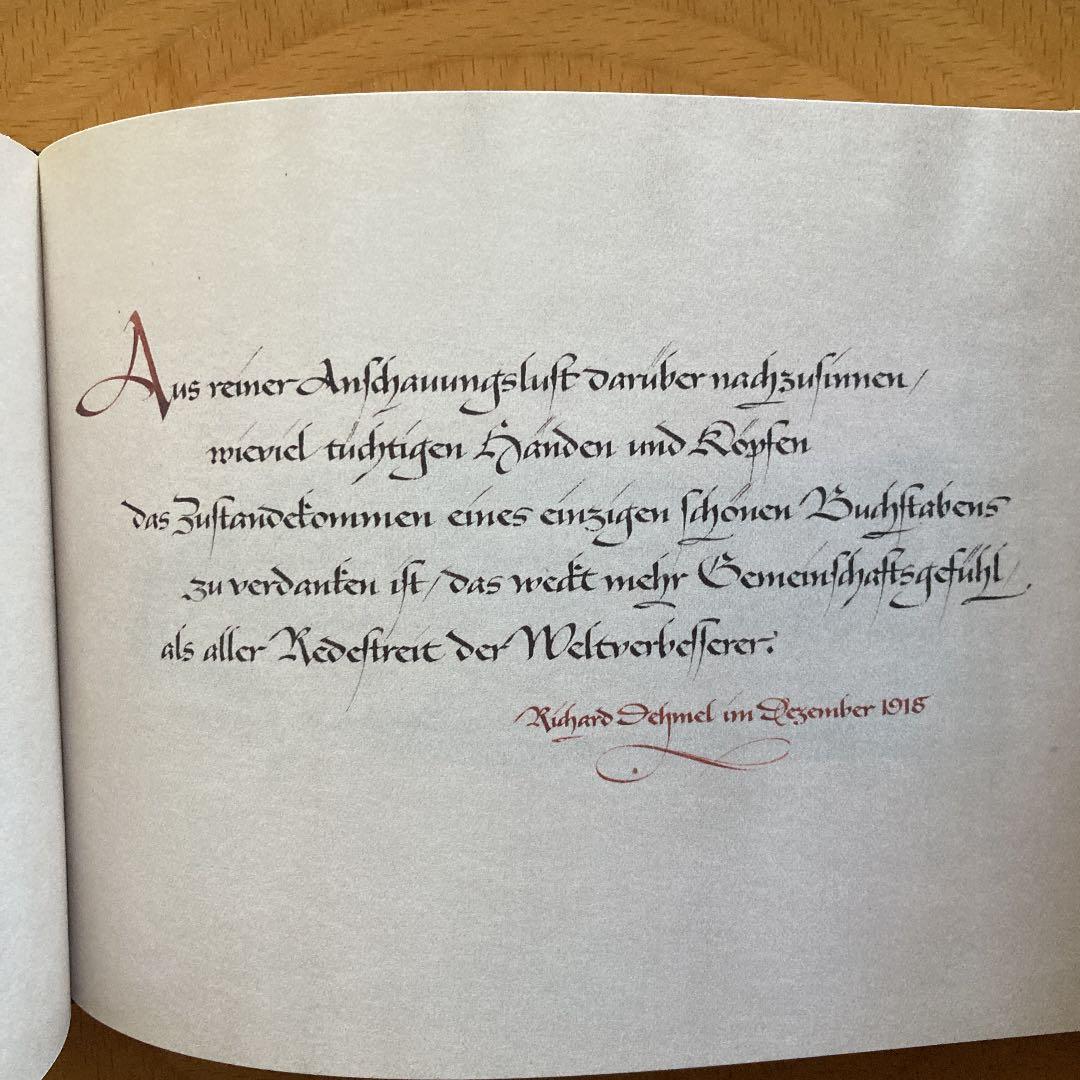 Aus reiner Anschauungslust darüber nachzusinnen /
wieviel tüchtigen Händen und Köpfen
das Zustandekommen eines einzigen schönen Buchstabens
zu verdanken ist / das weckt mehr Gemeinschaftsgefühl /
als aller Redestreit der Weltverbesserer.
Richard Dehmel im Dezember 1918